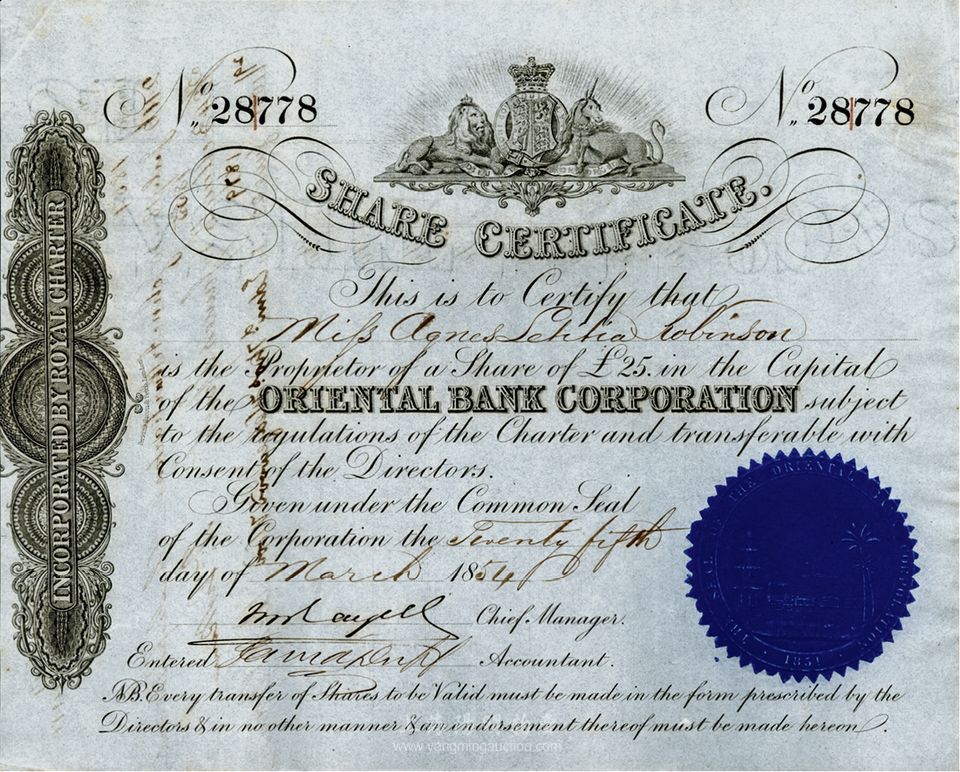 No. 28778
No. 28778
SHARE CERTIFICATE.
INCORPORATED BY ROYAL CHARTER
This is to Certify that
Miſs Agnes Letitia Robinson
is the Proprietor of a Share of £25. in the Capital
of the ORIENTAL BANK CORPORATION subject
to the regulations of the Charter and transferable with
Consent of the Directors.
Given under the Common Seal
of the Corporation the Twenty fifth
day of March 1854
Chief Manager.
Entered Accountant.
NB. Every transfer of Shares to be Valid must be made in the form prescribed by the
Directors & in no other manner & an endorsement thereof must be made hereon.
THE SEAL OF THE ORIENTAL BANK CORPORATION
1851
www.yangmingauction.com